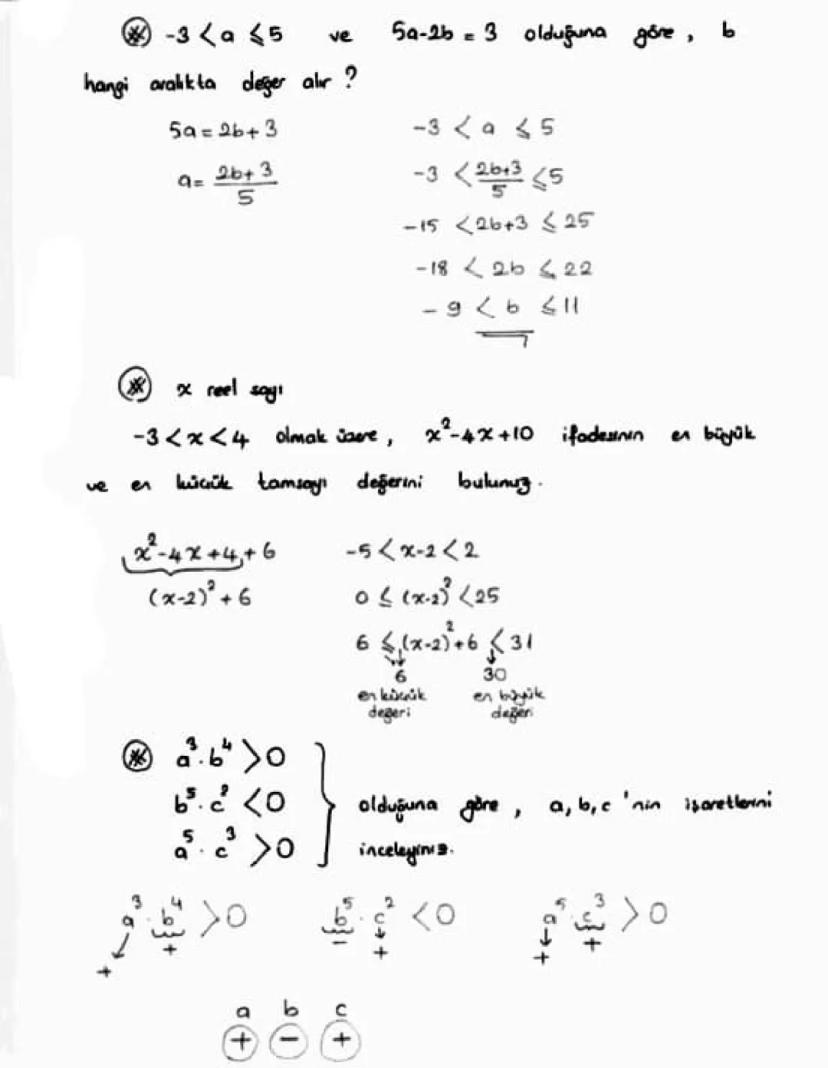 ※ -3 < a ≤ 5 ve 5a-2b = 3 olduğuna göre, b
hangi aralıkta değer alır?
5a = 2b+3
a = (2b+3)/5
-3 < a ≤ 5
-3 < (2b+3)/5 ≤ 5
-15 < 2b+3 ≤ 25
-18 < 2b ≤ 22
-9 < b ≤ 11
※ x reel sayı
-3 < x < 4 olmak üzere, x²-4x+10 ifadesinin en büyük
ve en küçük tamsayı değerini bulunuz.
x²-4x+4+6
(x-2)²+6
-5 < x-2 < 2
0 ≤ (x-2)² < 25
6 ≤ (x-2)²+6 < 31
6 30
en küçük en büyük
değeri değeri
※ a³.b⁴ > 0
b⁵.c² < 0
a⁵.c³ > 0
olduğuna göre, a, b, c'nin işaretlerini
inceleyiniz.
a³.b⁴ > 0 b⁵.c² < 0 a⁵.c³ > 0
+ + - + + +
a b c
+ - +